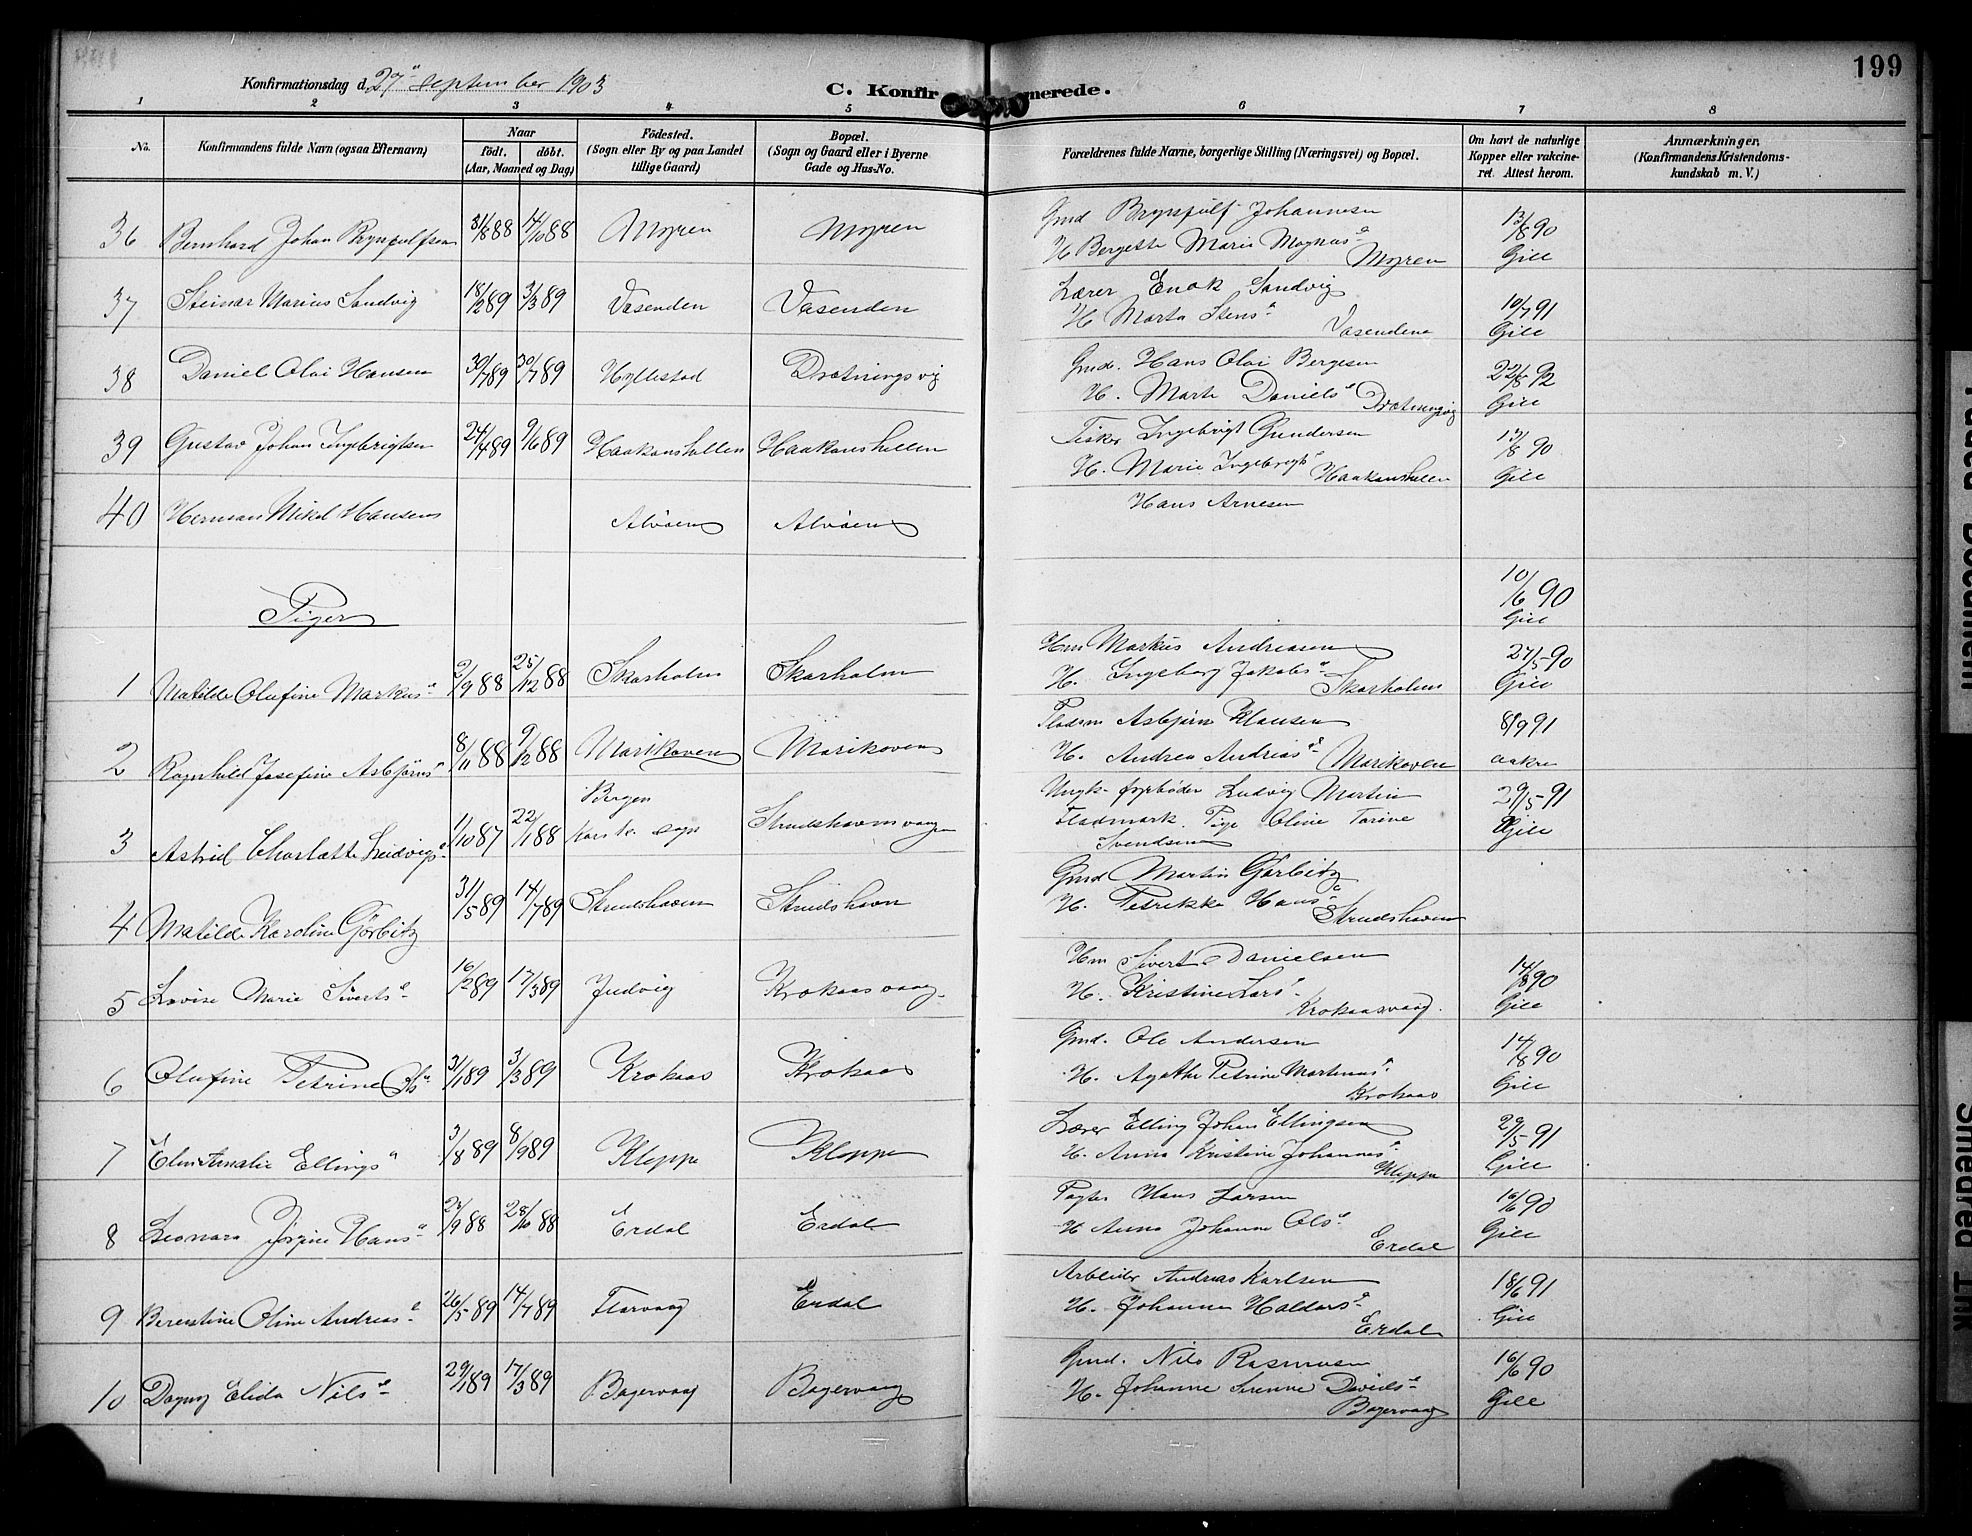 199
Konfirmationsdag d. 27de September 1903
C. Konfirmerede.
1 2 3 4 5 6 7 8
No.
Konfirmandens fulde Navn (ogsaa Efternavn)
Naar
født. døbt.
(Aar, Maaned og Dag)
Fødested.
(Sogn eller By og paa Landet
tillige Gaard)
Bopæl.
(Sogn og Gaard eller i Byerne
Gade og Hus-No.
Forældrenes fulde Navne, borgerlige Stilling (Næringsvei) og Bopæl.
Om havt de naturlige
Kopper eller vakcine-
ret. Attest herom.
Anmærkninger.
(Konfirmandens Kristendoms-
kundskab m. V.)
36 Bernhard Johan Brynjulfsen 31/8 88 14/10 88 Myren Myren Gmd Brynjulf Johannesen 13/8 90
H Bergette Marie Magnusd Myren Gill
37 Steinar Marius Sandvig 18/2 89 3/3 89 Vasenden Vasenden Lærer Enok Sandvig 10/7 91
H Marta Stensd Vasenden Gill
38 Daniel Olai Hansen 30/7 89 Hyllestad Drotningsvig Gmd. Hans Olai Bergesen 22/8 92
H. Marte Danielsd Drotningsvig Gill
39 Gustav Johan Ingebrigtsen 24/4 89 9/6 89 Haakonshellen Haakonshellen Fisker Ingebrigt Gundersen 13/8 90
H. Marie Ingebrigtsd Haakonshellen Gill
40 Herman Mikal Hansen Alvøen Alvøen Hans Arnesen
Piger
10/6 90
Gill
1 Matilde Olufine Markusd 2/9 88 25/12 88 Skarholm Skarholm Hm Markus Andreasen 27/5-90
H. Ingeborg Jakobsd Skarholm Gill
2 Ragnhild Josefine Asbjørnsd 8/11 88 9/12 88 Marikoven Marikoven Pladsm Asbjørn Klausen 8/9 91
H. Andrea Andriasd Marikoven Aakre
3 Astrid Charlotte Ludvigsd 1/10 87 22/1 88 Bergen
Korsk. sogn Strudshavnsvaagen Ungk. fyrbøder Ludvig Martin 29/5-91
Fladmark. Pige Oline Tarine Gill
Svendsen
4 Matilde Karoline Görbitz 31/5 89 14/7 89 Strudshavn Strudshavn Gmd Martin Görbitz
H. Petrikke Hansd Strudshavn
5 Lovise Marie Sivertsd 16/2 89 17/3 89 Judvig Krokaasvaag Hm Sivert Danielsen 14/8 90
H. Kristine Larsd Krokaasvaag. Gill
6 Olufine Petrine Olsd 31/1 89 3/3 89 Krokaas Krokaas Gmd. Ole Andersen 14/8 90
H. Agathe Petrine Martinusd Krokaas Gill
7 Elen Amalie Ellingsd 3/8 89 8/9 89 Kleppe Kleppe Lærer Elling Johan Ellingsen 29/5-91
H. Anna Kristine Johannesd Kleppe Gill
8 Leonara Jørgine Hansd 23/9 88 28/10 88 Erdal Erdal Pagter Hans Larsen 16/6 90
H Anna Johanne Olsd Erdal Gill
9 Berentine Oline Andreasd 26/5 89 14/7 89 Florvaag Erdal Arbeider Andreas Karlsen 18/6 91
H. Johanne Haldorsd Erdal Gill
10 Dagny Elida Nilsd 29/1 89 17/3 89 Bagervaag Bagervaag Gmd. Nils Rasmusen 16/6 90
H. Johanne Serine Davidsd Bagervaag Gill
Faded Document
Smeared Ink